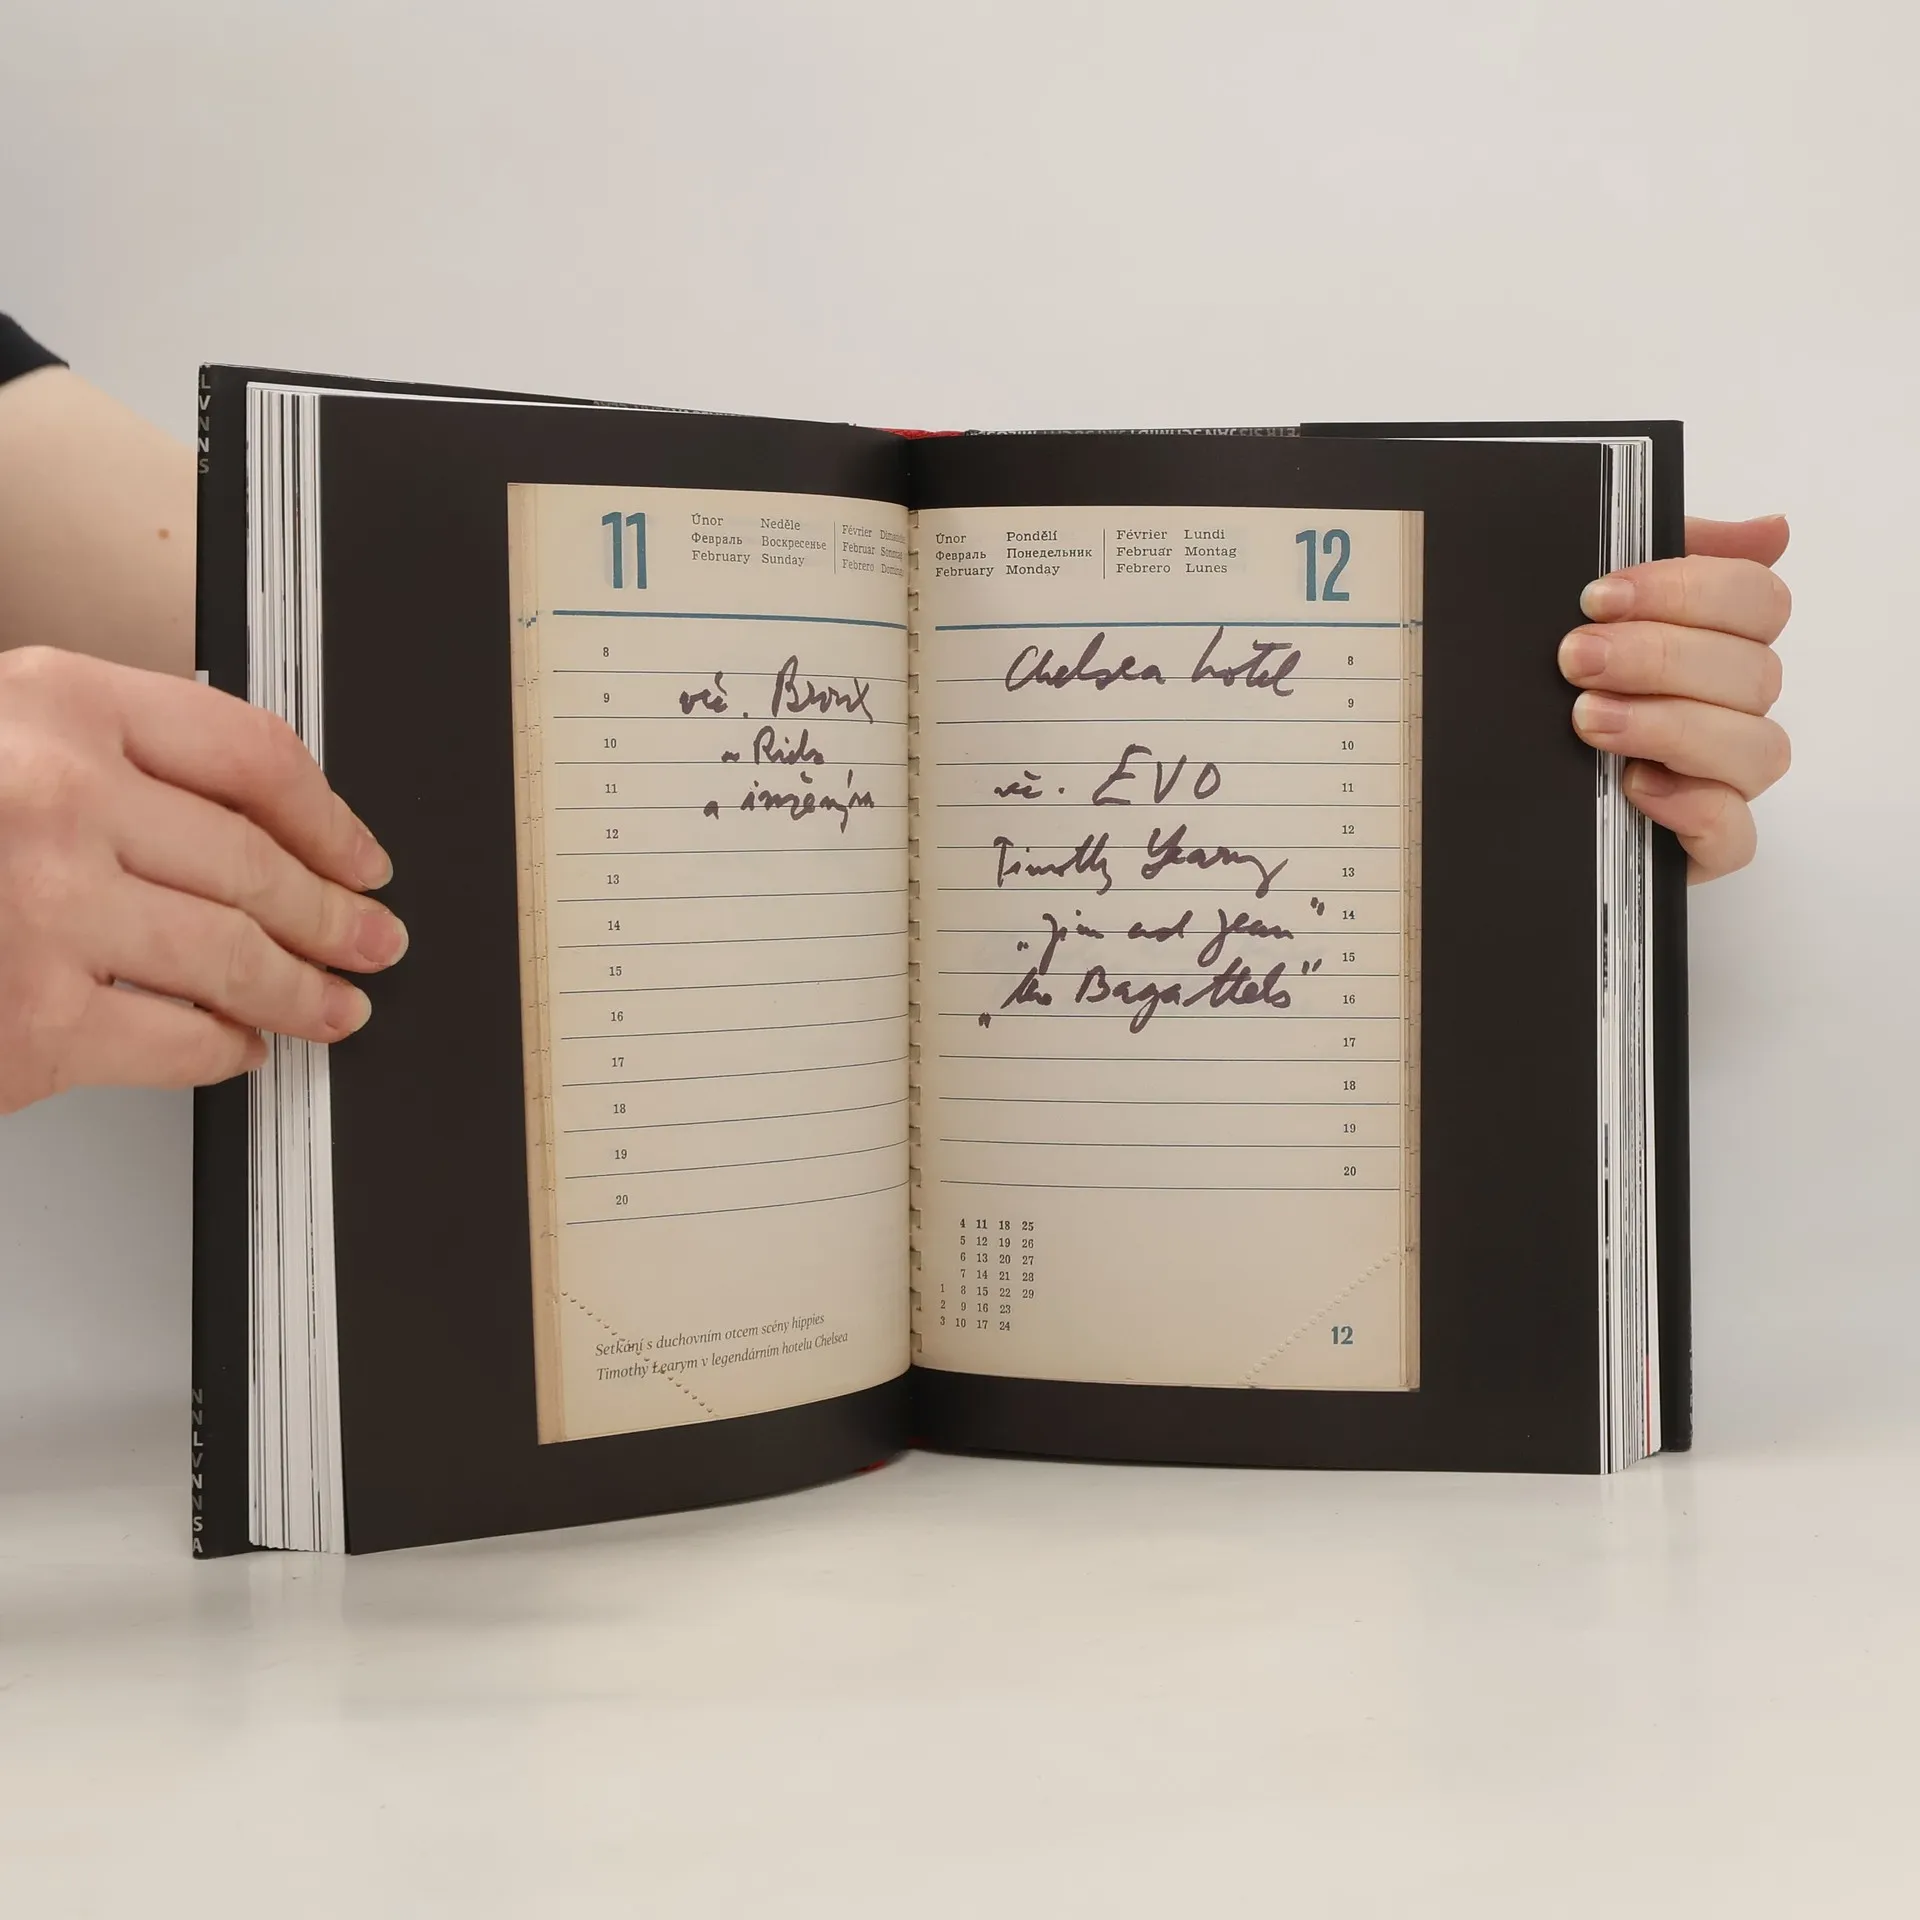 11
Únor Neděle
Февраль Воскресенье
February Sunday
Février
Februar
Febrero
8
9
10
11
12
13
14
15
16
17
18
19
20
več. Bronx
Setkání s duchovním otcem scény hippies
Timothy Learym v legendárním hotelu Chelsea
Únor Pondělí
Февраль Понедельник
February Monday
Février Lundi
Februar Montag
Febrero Lunes
12
Chelsea hotel
več. EVO
Timothy Yearny
"Jim and Jean"
"the Bagattels"
8
9
10
11
12
13
14
15
16
17
18
19
20
4 11 18 25
5 12 19 26
6 13 20 27
7 14 21 28
1 8 15 22 29
2 9 16 23
3 10 17 24
12